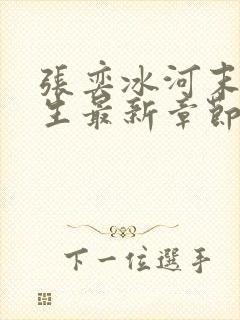 張奕冰河末
生最新章節
下一位選手